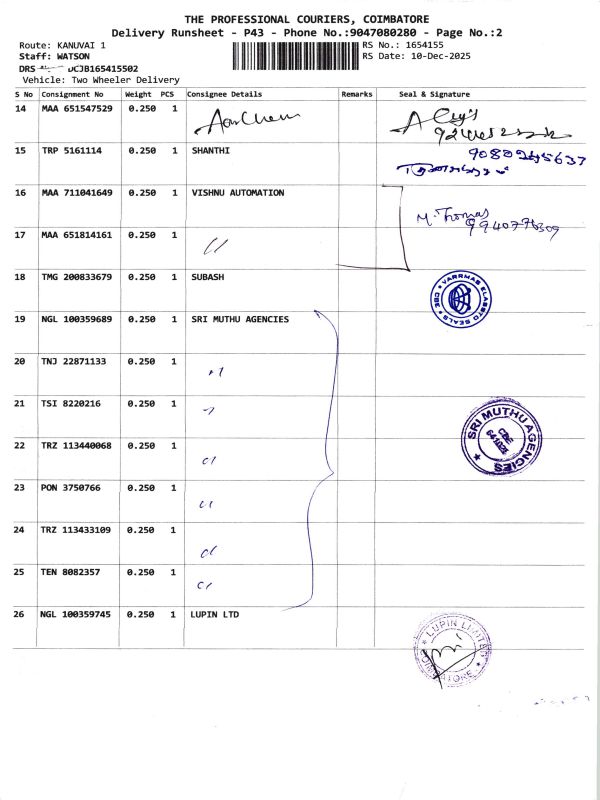 THE PROFESSIONAL COURIERS, COIMBATORE
Delivery Runsheet - P43 - Phone No.:9047080280 - Page No.:2
Route: KANUVAI 1
Staff: WATSON
DRS DCJB165415502
Vehicle: Two Wheeler Delivery
RS No.: 1654155
RS Date: 10-Dec-2025
S No Consignment No Weight PCS Consignee Details Remarks Seal & Signature
14 MAA 651547529 0.250 1
15 TRP 5161114 0.250 1 SHANTHI 9080945637
16 MAA 711041649 0.250 1 VISHNU AUTOMATION
M. Thomas
17 MAA 651814161 0.250 1 "
18 TMG 200833679 0.250 1 SUBASH
VARRMAS ELASSTO SEALS * CBE *
19 NGL 100359689 0.250 1 SRI MUTHU AGENCIES
20 TNJ 22871133 0.250 1 "
21 TSI 8220216 0.250 1 "
SRI MUTHU AGENCIES
CBE
22 TRZ 113440068 0.250 1 "
23 PON 3750766 0.250 1 "
24 TRZ 113433109 0.250 1 "
25 TEN 8082357 0.250 1 "
26 NGL 100359745 0.250 1 LUPIN LTD
LUPIN LIMITED
COIMBATORE